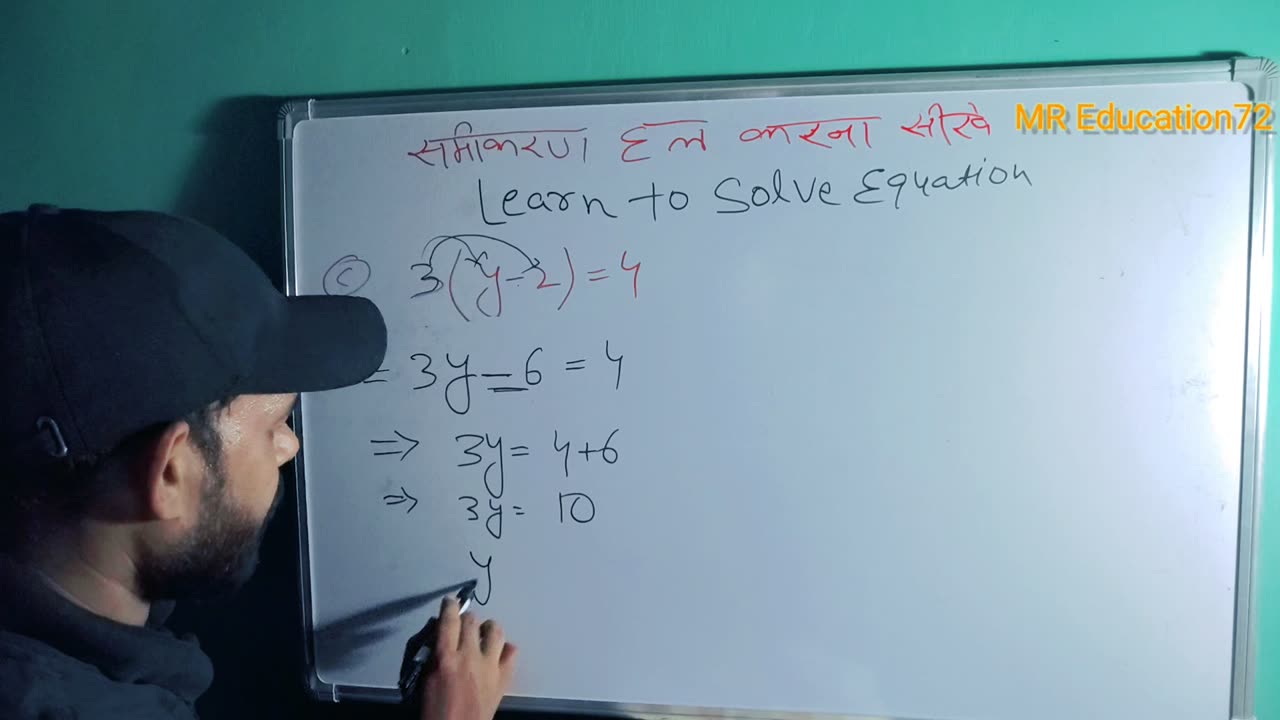 समीकरण हल करना सीखे
MR Education72
Learn to Solve Equation
(C) 3(y-2)=4
= 3y-6=4
=> 3y= 4+6
=> 3y= 10
y